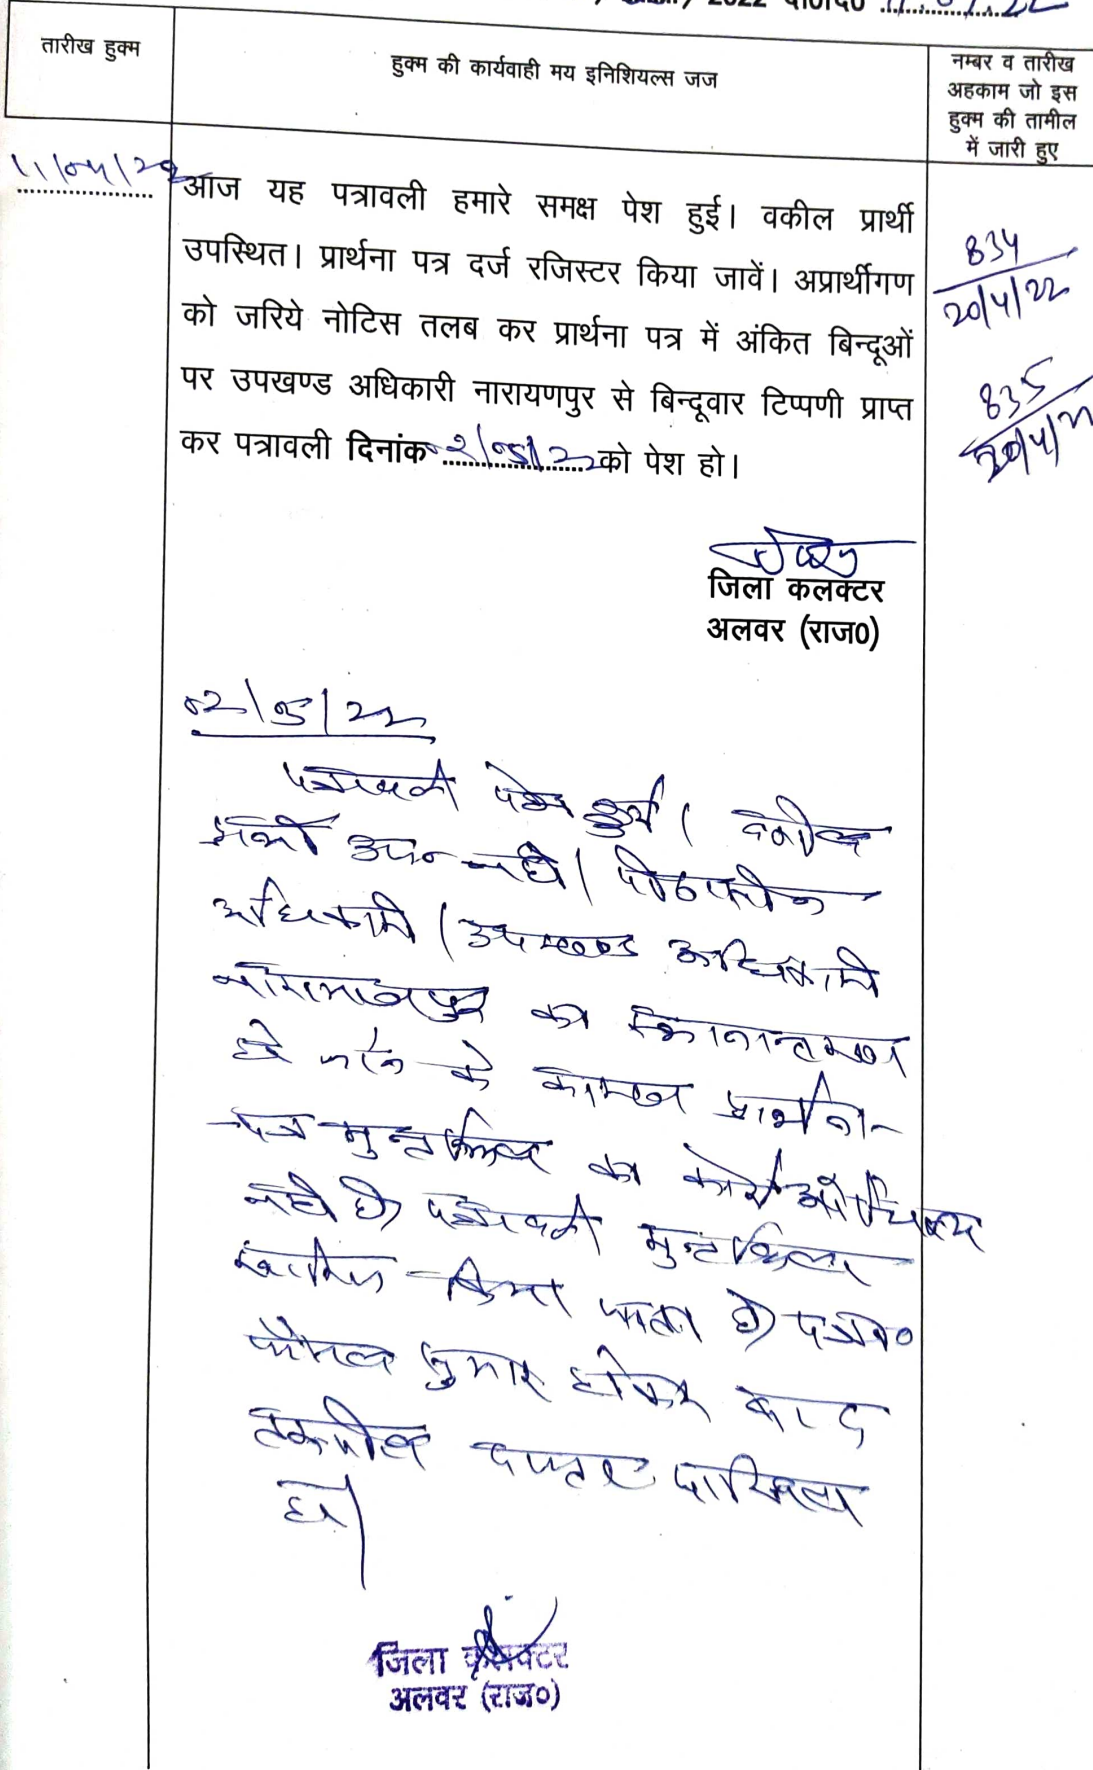 2022
तारीख हुक्म
हुक्म की कार्यवाही मय इनिशियल्स जज
नम्बर व तारीख
अहकाम जो इस
हुक्म की तामील
में जारी हुए
11/04/22
आज यह पत्रावली हमारे समक्ष पेश हुई। वकील प्रार्थी
उपस्थित। प्रार्थना पत्र दर्ज रजिस्टर किया जावें। अप्रार्थीगण
को जरिये नोटिस तलब कर प्रार्थना पत्र में अंकित बिन्दूओं
पर उपखण्ड अधिकारी नारायणपुर से बिन्दूवार टिप्पणी प्राप्त
कर पत्रावली दिनांक 02/05/22 को पेश हो।
834
20/4/22
835
20/4/22
जिला कलक्टर
अलवर (राज0)
02/05/22
पत्रावली पेश हुई। वकील
प्रार्थी उप0 नहीं। पीठासीन
अधिकारी (उपखण्ड अधिकारी
नारायणपुर का स्थानान्तरण
हो जाने के कारण प्रार्थना-
पत्र मुन्तकिल का कोई औचित्य
नहीं है। पत्रावली मुन्तकिल
खारिज किया जाता है। पत्राव0
फैसल शुमार होकर बाद
तकमील दफ्तर दाखिल
हो।
जिला कलक्टर
अलवर (राज0)